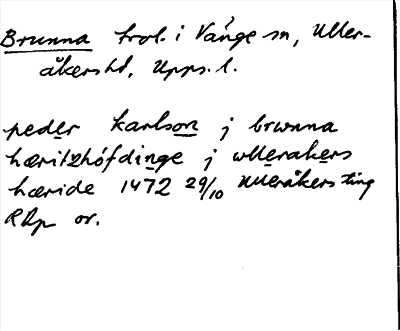 Brunna trol. i Vänge sn, Uller-
åkers hd, Upps. l.
peder karlson j brwnna
hæritzhöfdinge j wllerakers
hæride 1472 29/10 Ulleråkers ting
RAp or.